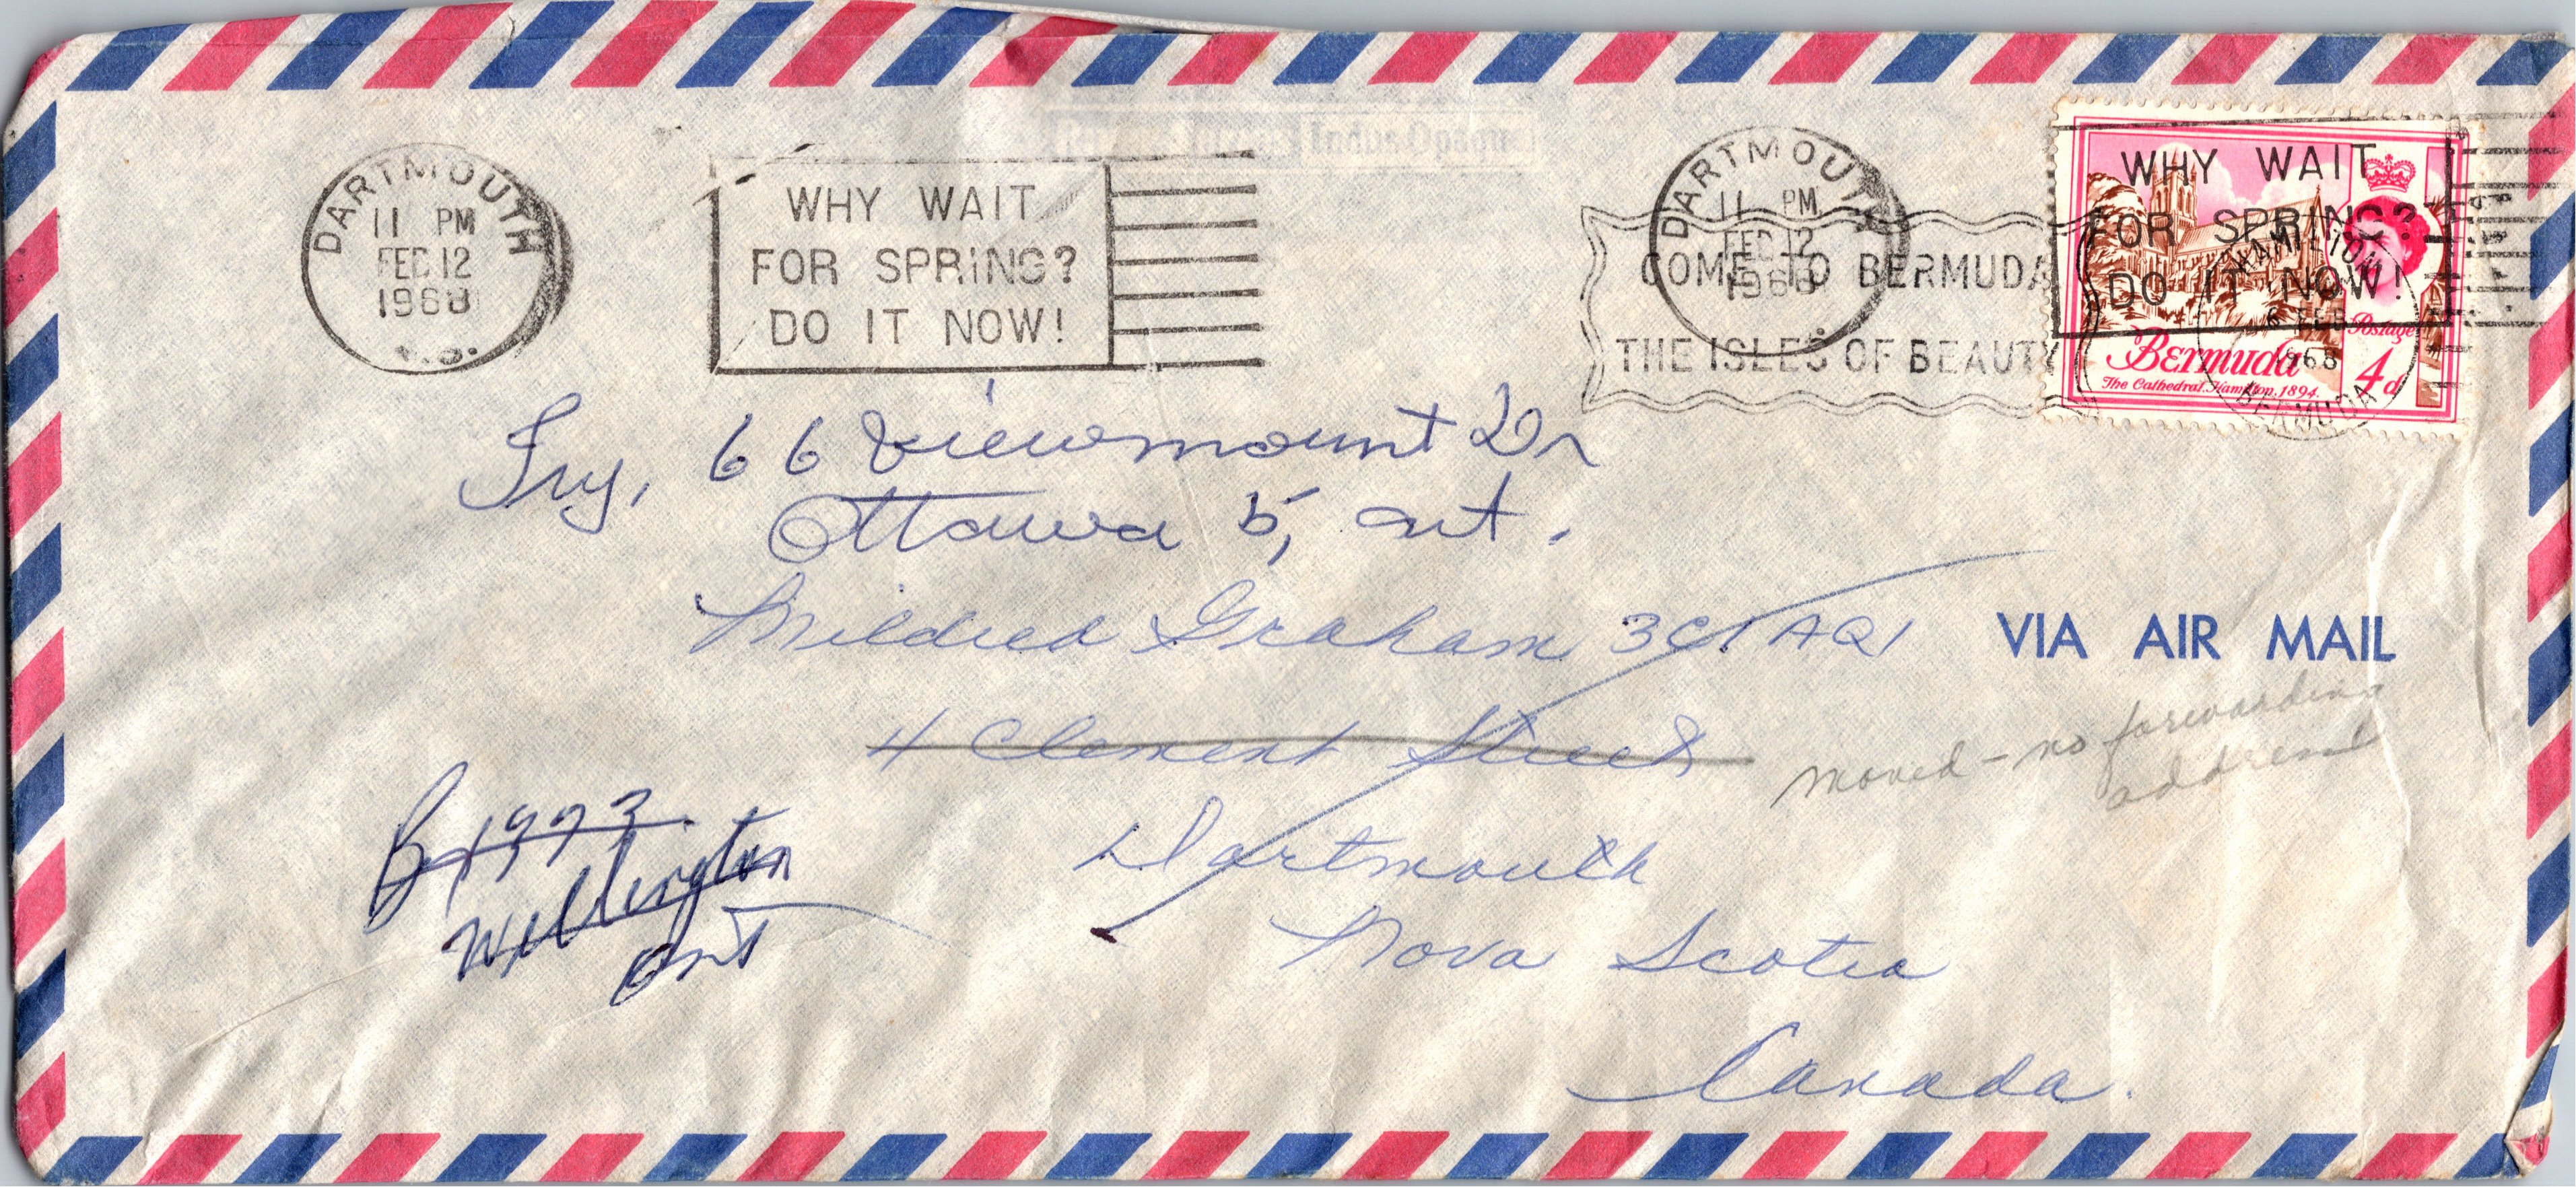 DARTMOUTH
11 PM
FEB 12
1968
N.S.
WHY WAIT
FOR SPRING?
DO IT NOW!
DARTMOUTH
11 PM
FEB 12
1968
WHY WAIT
FOR SPRING?
DO IT NOW!
COME TO BERMUDA
THE ISLES OF BEAUTY
HAMILTON
6 FEB
1968
BERMUDA
Postage
Bermuda
4d
The Cathedral, Hamilton, 1894.
Try, 66 Viewmount Dr
Ottawa 5, Ont.
Mildred Graham 3C1AQ1
VIA AIR MAIL
4 Clement Street
moved - no forwarding
address
Dartmouth
Nova Scotia
Canada.
B 1973
Wellington
Ont